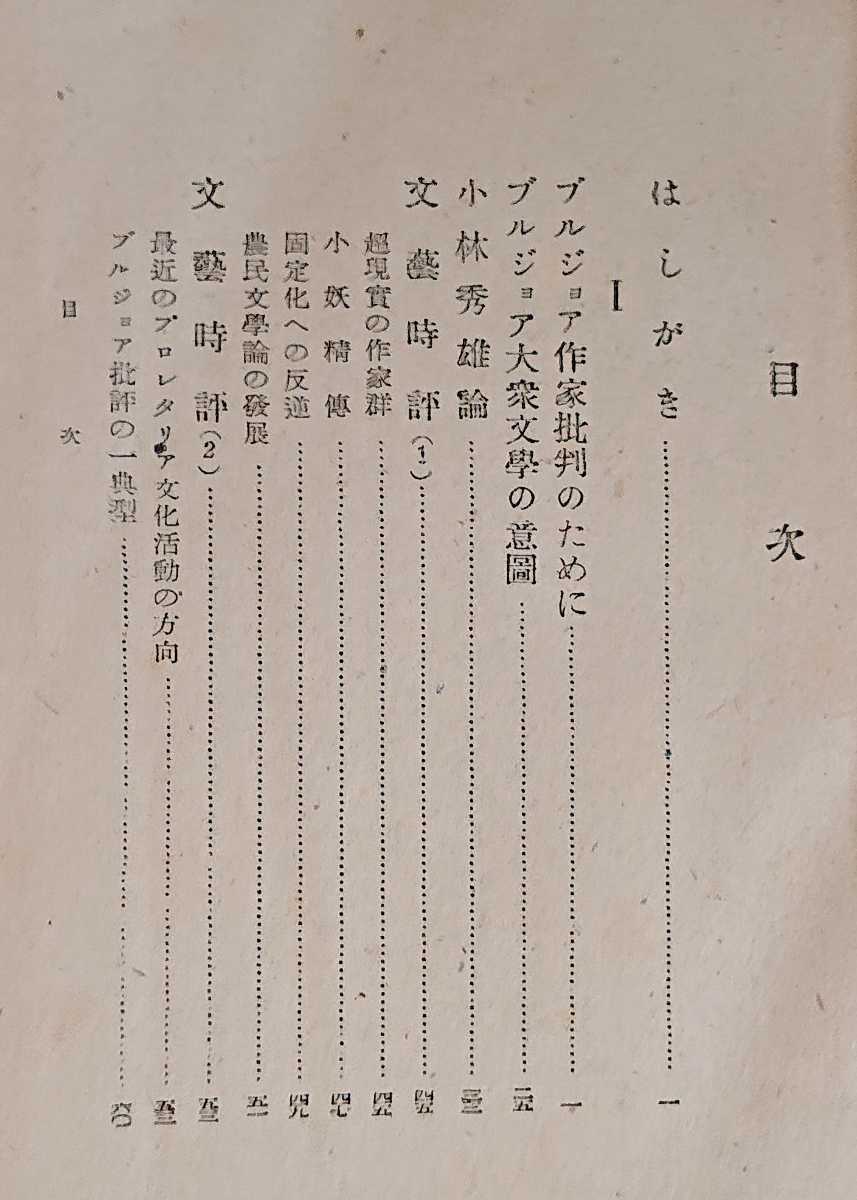 目次
はしがき……一
I
ブルジョア作家批判のために……一
ブルジョア大衆文學の意圖……二五
小林秀雄論……三三
文藝時評(1)……四五
超現實の作家群……四五
小妖精傳……四七
固定化への反逆……四九
農民文學論の發展……五一
文藝時評(2)……五三
最近のプロレタリア文化活動の方向……五三
ブルジョア批評の一典型……六〇
目次